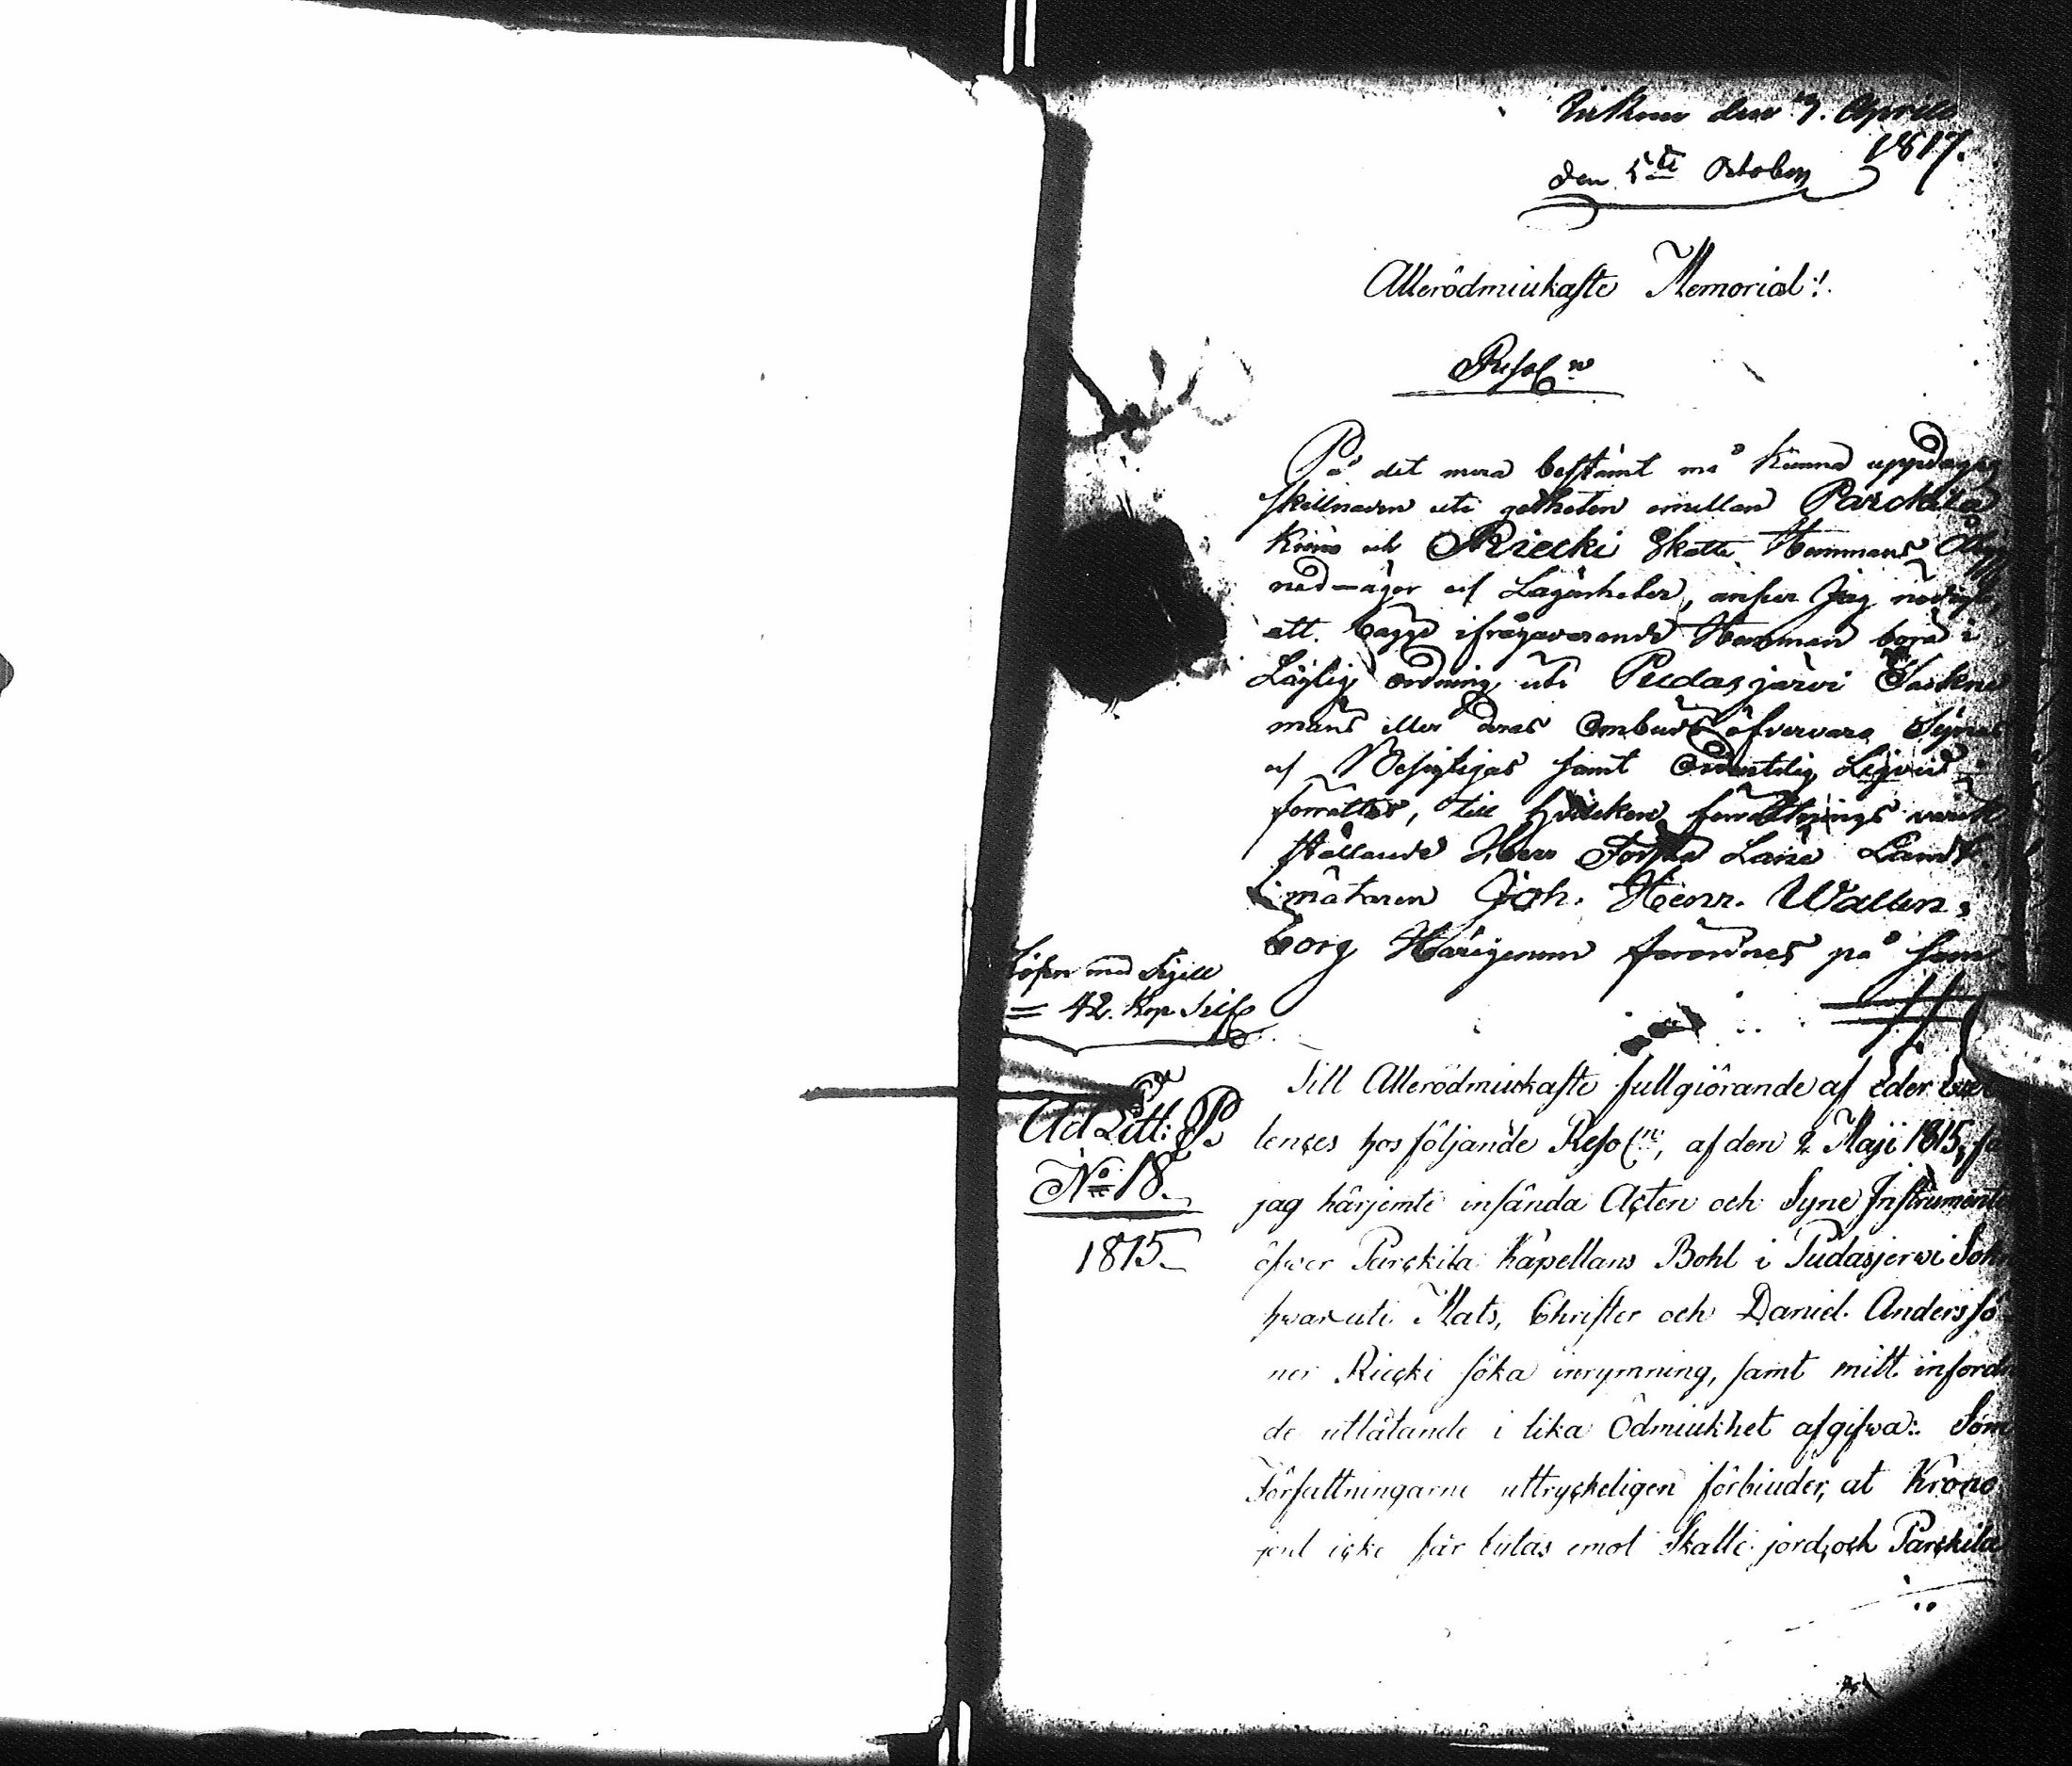 den 7. Aprill
1817.
den 5te October
Allerödmiukaste Memorial!
Resol.n
På det mera bestämt må kunna uppdagas
skillnaden uti godheten emellan Parckila
Krono och Riecki Skatte Hemmans
ägor och Lägenheter, anser Jag nödigt,
att bägge ifrågavarande Hemman böra i
Laglig ordning uti Pudasjärvi Sockne
mäns eller deras Ombuds öfvervaro Synas
och Besigtigas samt Ordentelig Liqvid
förrättas, till hvilken förrättnings värk
ställande Herr Lane Landt
mätaren Joh. Henr. Wallen,
borg Härigenom förordnes på som
Lösen med Sigill
= 42. Kop. Silf
Ad Litt: P.
No 18.
1815
Till Allerödmiukaste fullgiörande af Eder
lences hos följande Resol.n, af den 2 Maji 1815, får
jag härjemte insända Acten och Syne Instrumente
öfwer Parckila Kapellans Bohl i Pudasjerwi Sokn
hwaruti Mats, Christer och Daniel Anders sö
ner Riecki söka inrymning, samt mitt infordra
de utlåtande i lika Ödmiukhet afgifwa: Som
Författningarne uttryckeligen förbiuder, at Krono
jord icke får bytas emot Skatte jord, och Parckila